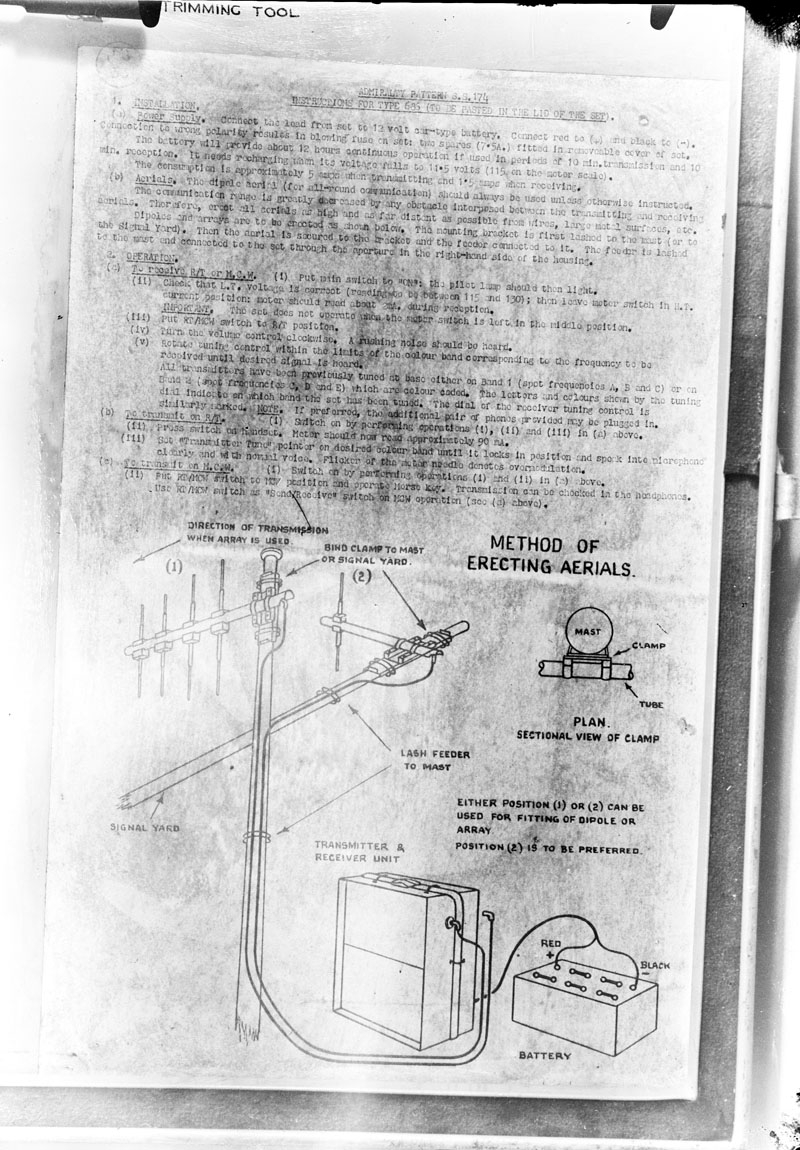 TRIMMING TOOL
ADMIRALTY PATTERN S.S. 174
INSTRUCTIONS FOR TYPE 685 (TO BE PASTED IN THE LID OF THE SET).
1. INSTALLATION.
(a) Power Supply. Connect the lead from set to 12 volt car-type battery. Connect red to (+) and black to (-).
Connection to wrong polarity results in blowing fuse on set: two spares (7·5A.) fitted in removable cover of set.
The battery will provide about 12 hours continuous operation if used in periods of 10 min. transmission and 10
min. reception. It needs recharging when its voltage falls to 11·5 volts (115 on the meter scale).
The consumption is approximately 5 amps when transmitting and 1·5 amps when receiving.
(b) Aerials. The dipole aerial (for all-round communication) should always be used unless otherwise instructed.
The communication range is greatly decreased by any obstacle interposed between the transmitting and receiving
aerials. Therefore, erect all aerials as high and as far distant as possible from wires, large metal surfaces, etc.
Dipoles and arrays are to be erected as shown below. The mounting bracket is first lashed to the mast (or to
the Signal Yard). Then the aerial is secured to the bracket and the feeder connected to it. The feeder is lashed
to the mast and connected to the set through the aperture in the right-hand side of the housing.
2. OPERATION.
(a) To receive R/T or M.C.W. (i) Put main switch to "ON": the pilot lamp should then light.
(ii) Check that L.T. voltage is correct (reading to be between 115 and 130); then leave meter switch in H.T.
current position: meter should read about mA. during reception.
IMPORTANT. The set does not operate when the meter switch is left in the middle position.
(iii) Put RT/MCW switch to R/T position.
(iv) Turn the volume control clockwise. A rushing noise should be heard.
(v) Rotate tuning control within the limits of the colour band corresponding to the frequency to be
received until desired signal is heard.
All transmitters have been previously tuned at base either on Band 1 (spot frequencies A, B and C) or on
Band 2 (spot frequencies C, D and E) which are colour coded. The letters and colours shown by the tuning
dial indicate on which band the set has been tuned. The dial of the receiver tuning control is
similarly marked. NOTE. If preferred, the additional pair of phones provided may be plugged in.
(b) To transmit on R/T. (i) Switch on by performing operations (i), (ii) and (iii) in (a) above.
(ii) Press switch on Handset. Meter should now read approximately 90 mA.
(iii) Set "Transmitter Tune" pointer on desired colour band until it locks in position and speak into microphone
clearly and with normal voice. Flicker of the meter needle denotes overmodulation.
(c) To transmit on M.C.W. (i) Switch on by performing operations (i) and (ii) in (a) above.
(ii) Put RT/MCW switch to MCW position and operate Morse key. Transmission can be checked in the headphones.
Use RT/MCW switch as "Send/Receive" switch on MCW operation (see (a) above).
DIRECTION OF TRANSMISSION
WHEN ARRAY IS USED.
(1)
BIND CLAMP TO MAST
OR SIGNAL YARD.
(2)
METHOD OF
ERECTING AERIALS.
MAST
CLAMP
TUBE
PLAN.
SECTIONAL VIEW OF CLAMP
LASH FEEDER
TO MAST
SIGNAL YARD
EITHER POSITION (1) OR (2) CAN BE
USED FOR FITTING OF DIPOLE OR
ARRAY
POSITION (2) IS TO BE PREFERRED.
TRANSMITTER &
RECEIVER UNIT
RED
+
BLACK
-
BATTERY